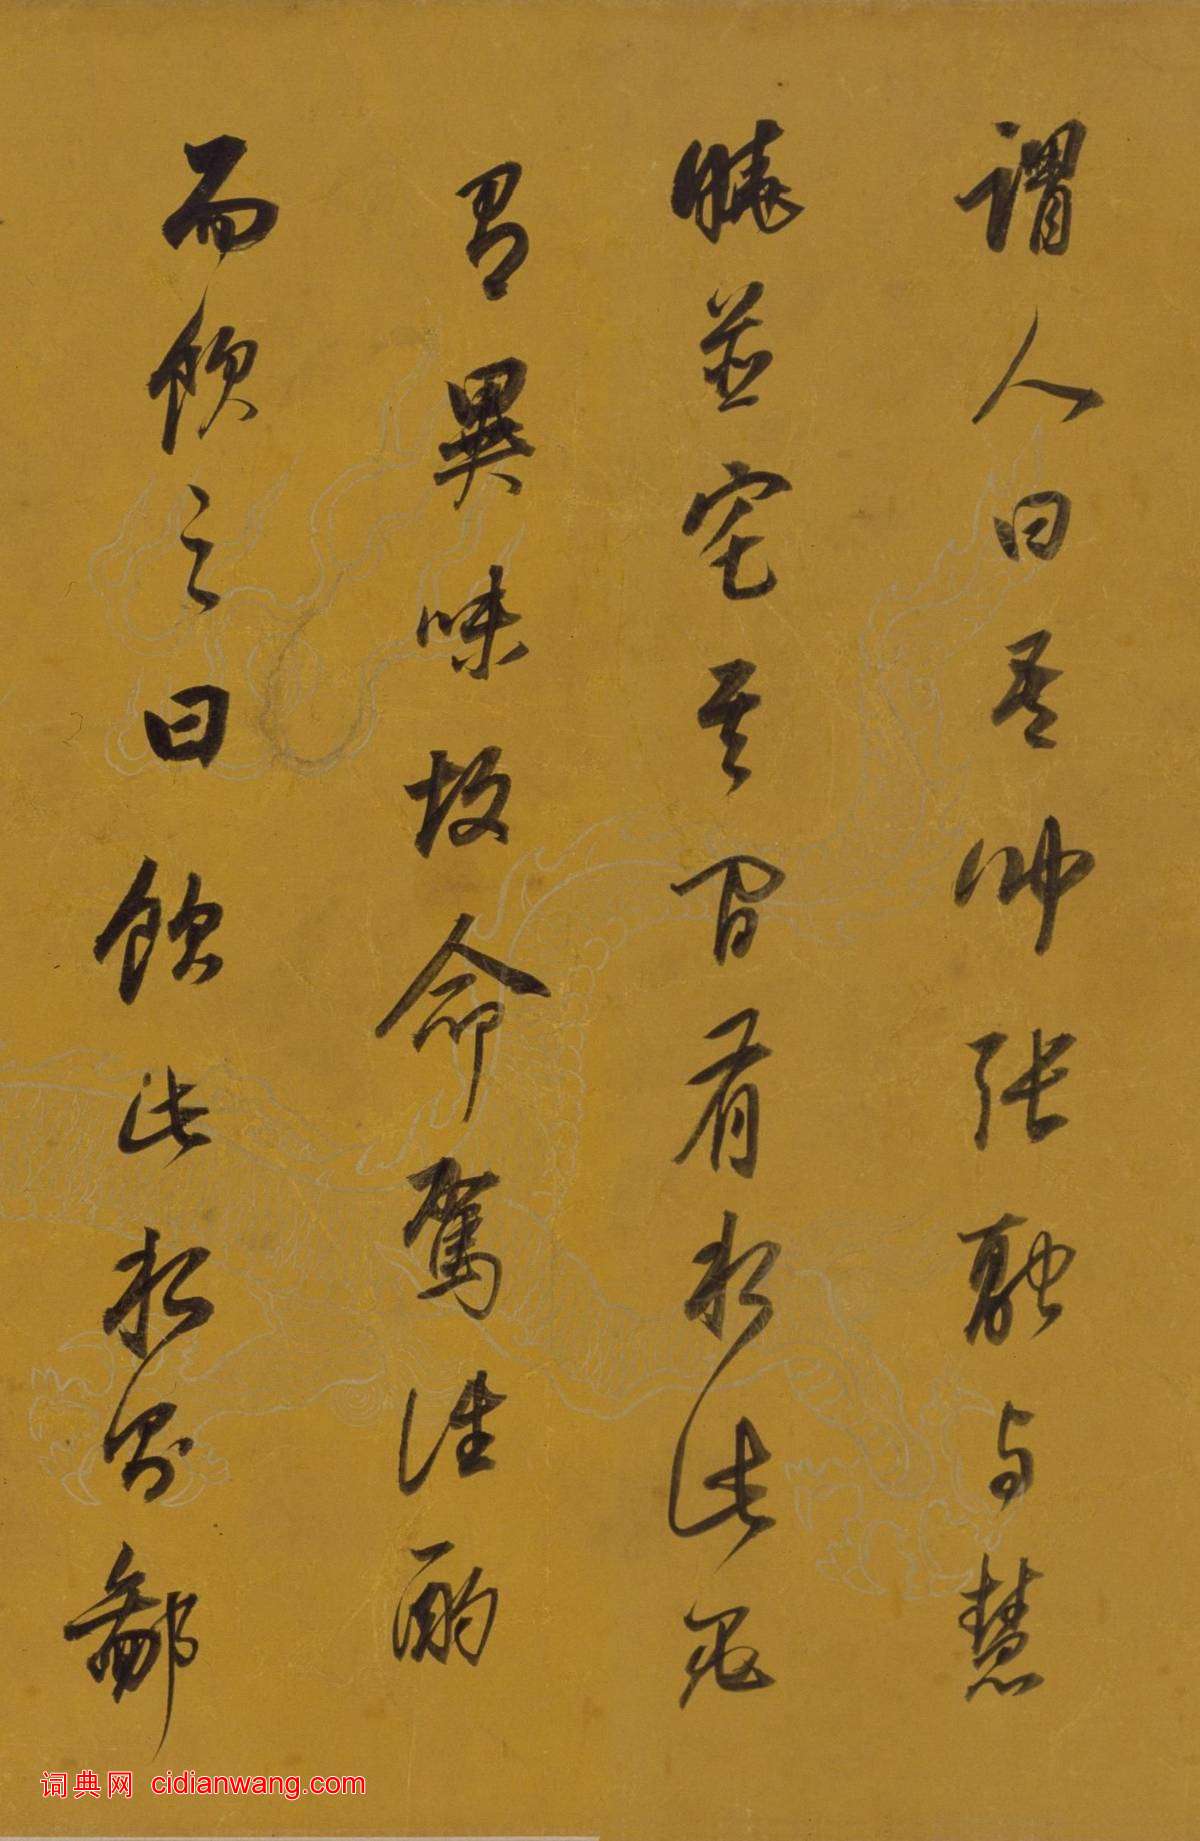 謂人曰吾聞張融與慧
曉並宅其間有水此必
有異味故命駕往酌
而飲之曰飲此水則鄙
词典网 cidianwang.com